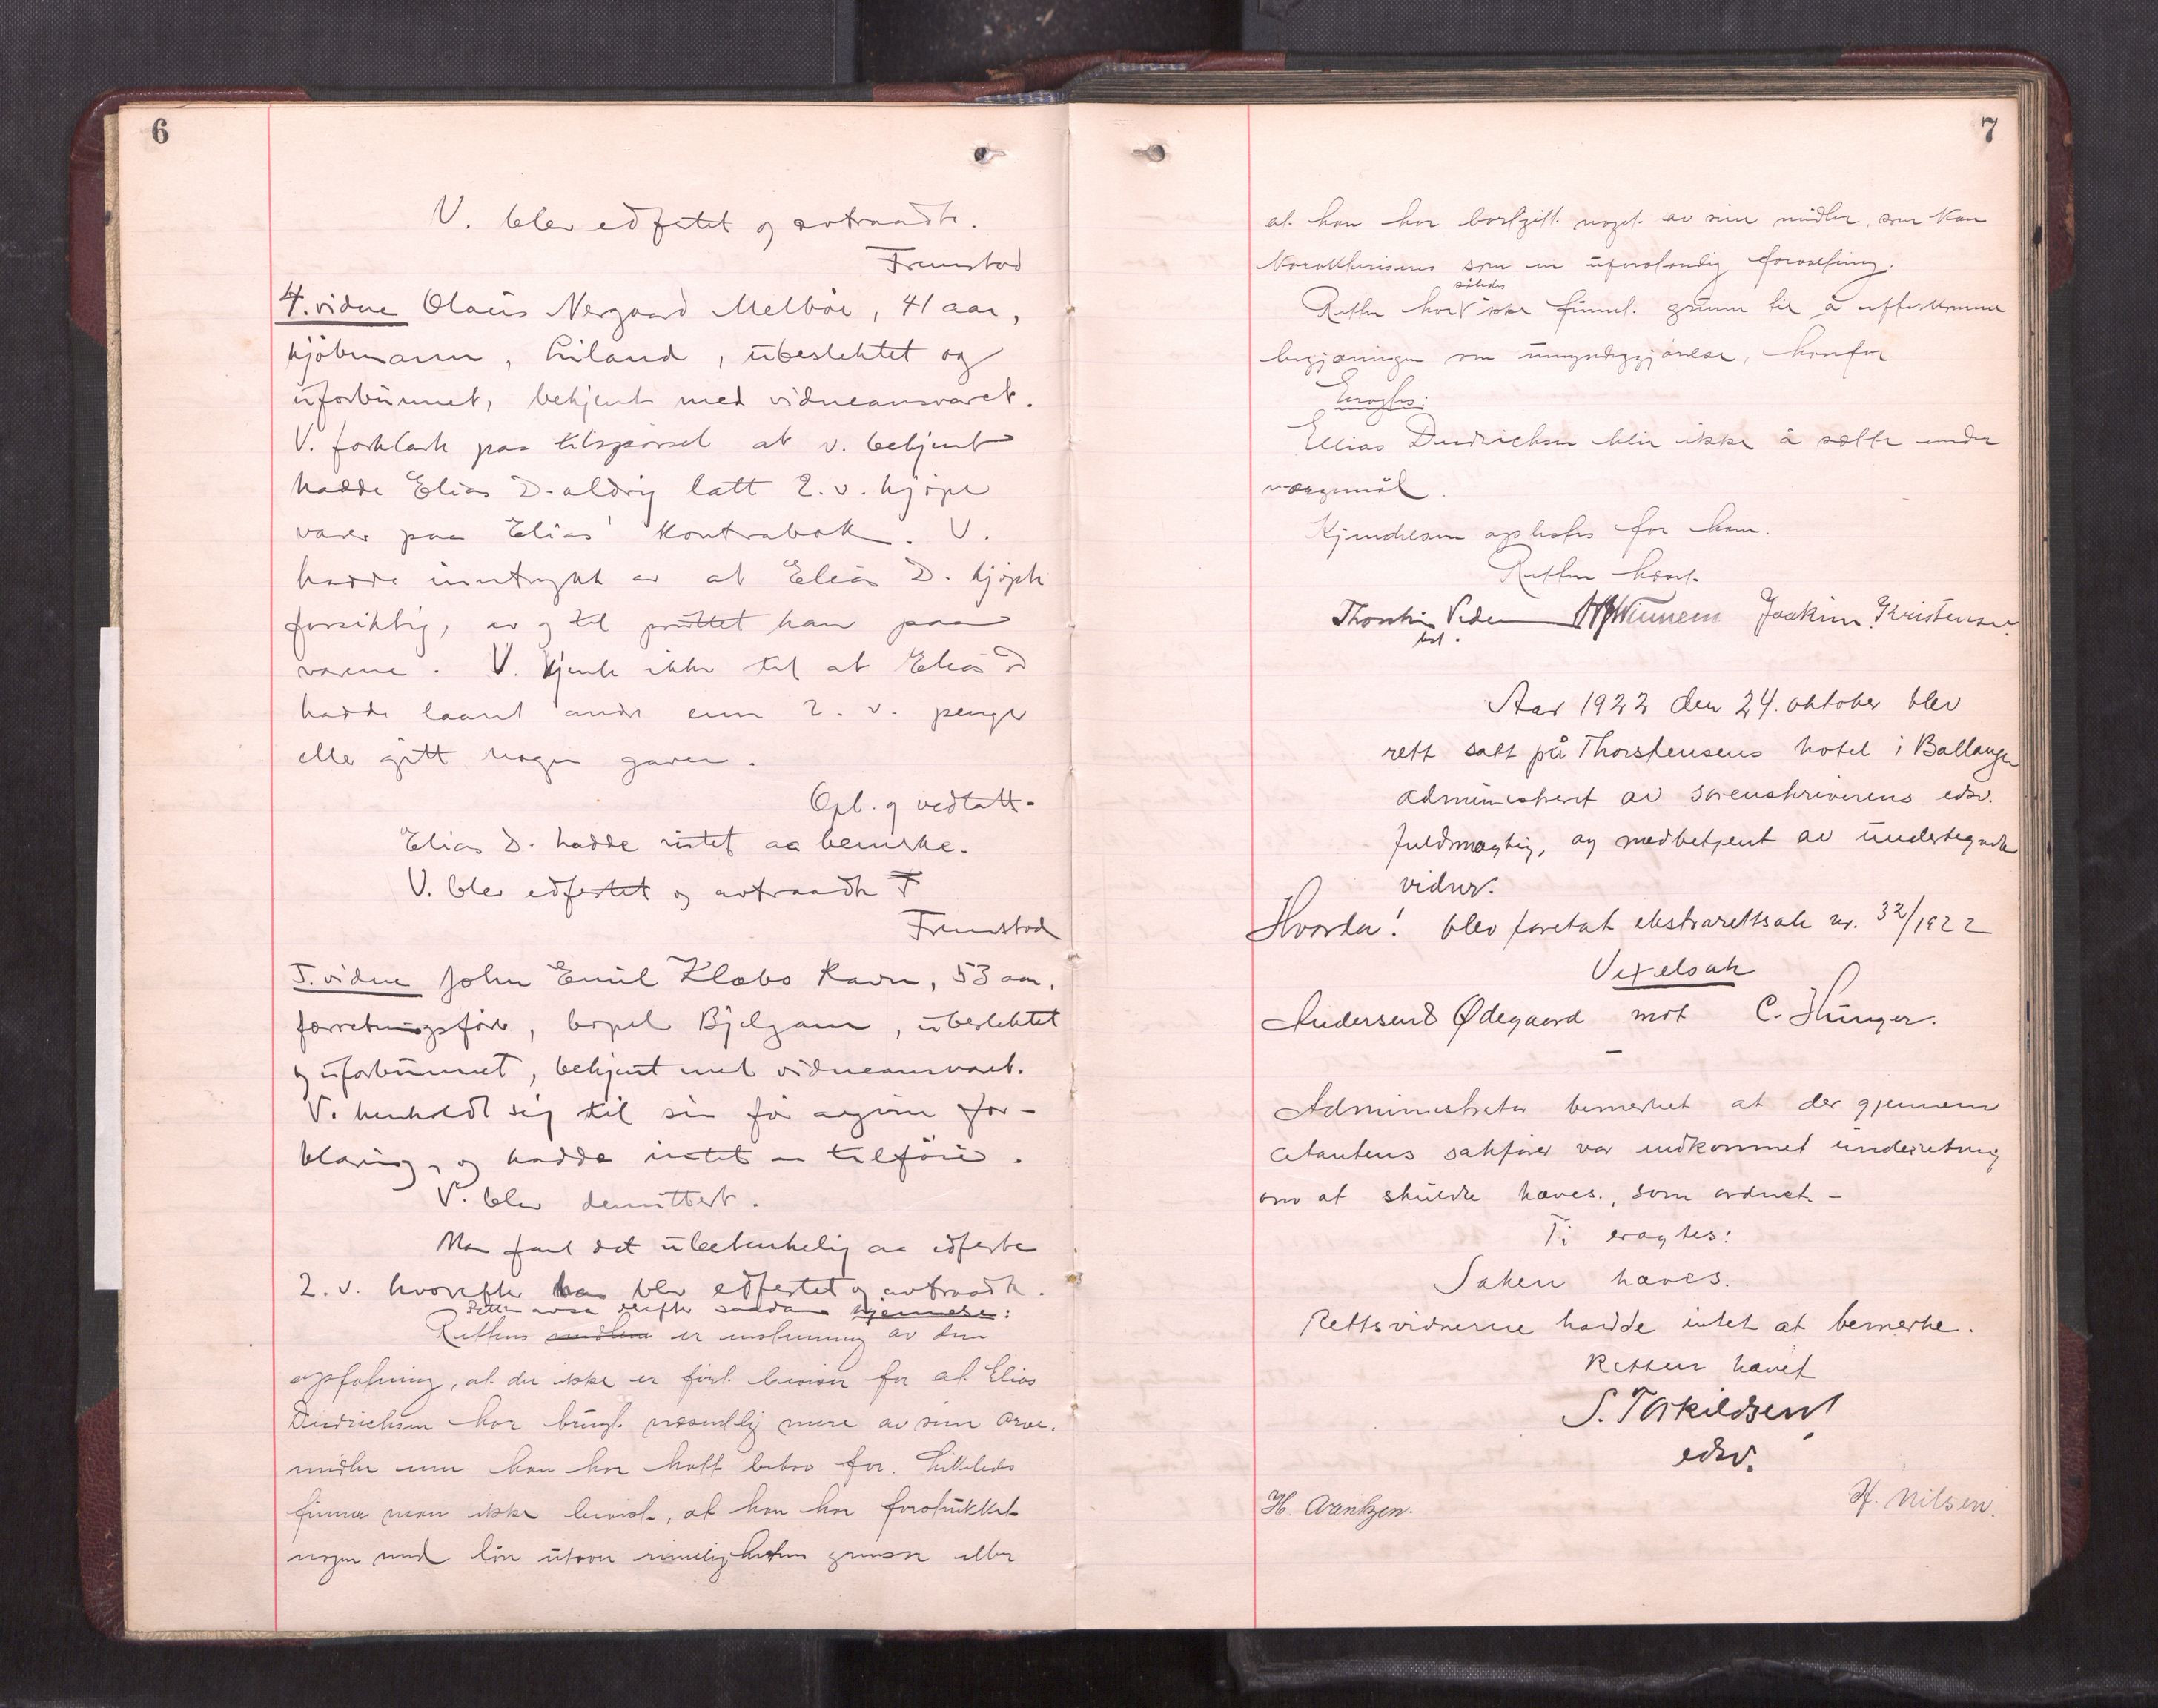 6
V. blev edfestet og avtraadte.
Fremstod
4. vidne Olaus Nergaard Melböe, 41 aar,
kjöbmann, Liland, ubeslektet og
uforbunnet, bekjent med vidneansvaret.
V. forklarte paa tilspörsel at v. bekjent
hadde Elias D. aldrig latt 2. v. kjøpe
varer paa Elias' kontrabok. V.
hadde inntrykk av at Elias D. kjøpte
forsiktig, av og til pruttet han paa
varene. V. kjente ikke til at Elias D
hadde laant andre enn 2. v. penger
eller gitt nogen gaver.
Opl. og vedtatt.
Elias D. hadde intet aa bemerke.
V. blev edfestet og avtraadte F
Fremstod
5. vidne John Emil Klæbo Ravn, 53 aar,
forretningsförer, bopel, ubeslektet
og uforbunnet, bekjent med vidneansvaret.
V. henholdt sig til sin för avgivne for-
klaring, og hadde intet at tilföie.
V. blev demittert.
Man fant det ubetenkelig aa edfeste
2. v. hvorefter han blev edfestet og avtraadte.
Retten avsa derefter saadan kjennelse:
Rettens er enstemmig av den
opfatning, at der ikke er ført beviser for at Elias
Diedrichsen har brugt væsendtlig mere av sine arve-
midler enn han har hatt behov for. Likeledes
finner man ikke bevist, at han har forstrukket
nogen med lån utover rimelighetens grenser eller
7
at han har bortgitt noget av sine midler, som kan
karakteriseres som en uforstandig forvaltning.
således
Retten har V ikke funnet grunn til å efterkomme
begjæringen om umyndiggjørelse, hvorfor
Eragtes:
Elias Diedrichsen blir ikke å sætte under
værgemål.
Kjendelsen oplæstes for ham.
Retten hævet.
Thorstein Joakim Kristensen
Aar 1922 den 24. oktober blev
rett satt på Thorstensens hotel i Ballangen
administreret av sorenskriverens edsv.
fuldmægtig, og medbetjent av undertegnede
vidner.
Hvorda! blev foretat ekstrarettsak nr. 32/1922
Vexelsak
Andersen & Ødegaard mot C. Hunger.
Administrator bemerket at der gjennem
citantens sakfører var indkommet underretning
om at skulde hæves, som ordnet. -
Ti eragtes:
Saken hæves.
Rettsvidnerne hadde intet at bemerke.
Retten hævet
S. Torkildsen
edsv.
H. Arntzen.
H. Nilsen.